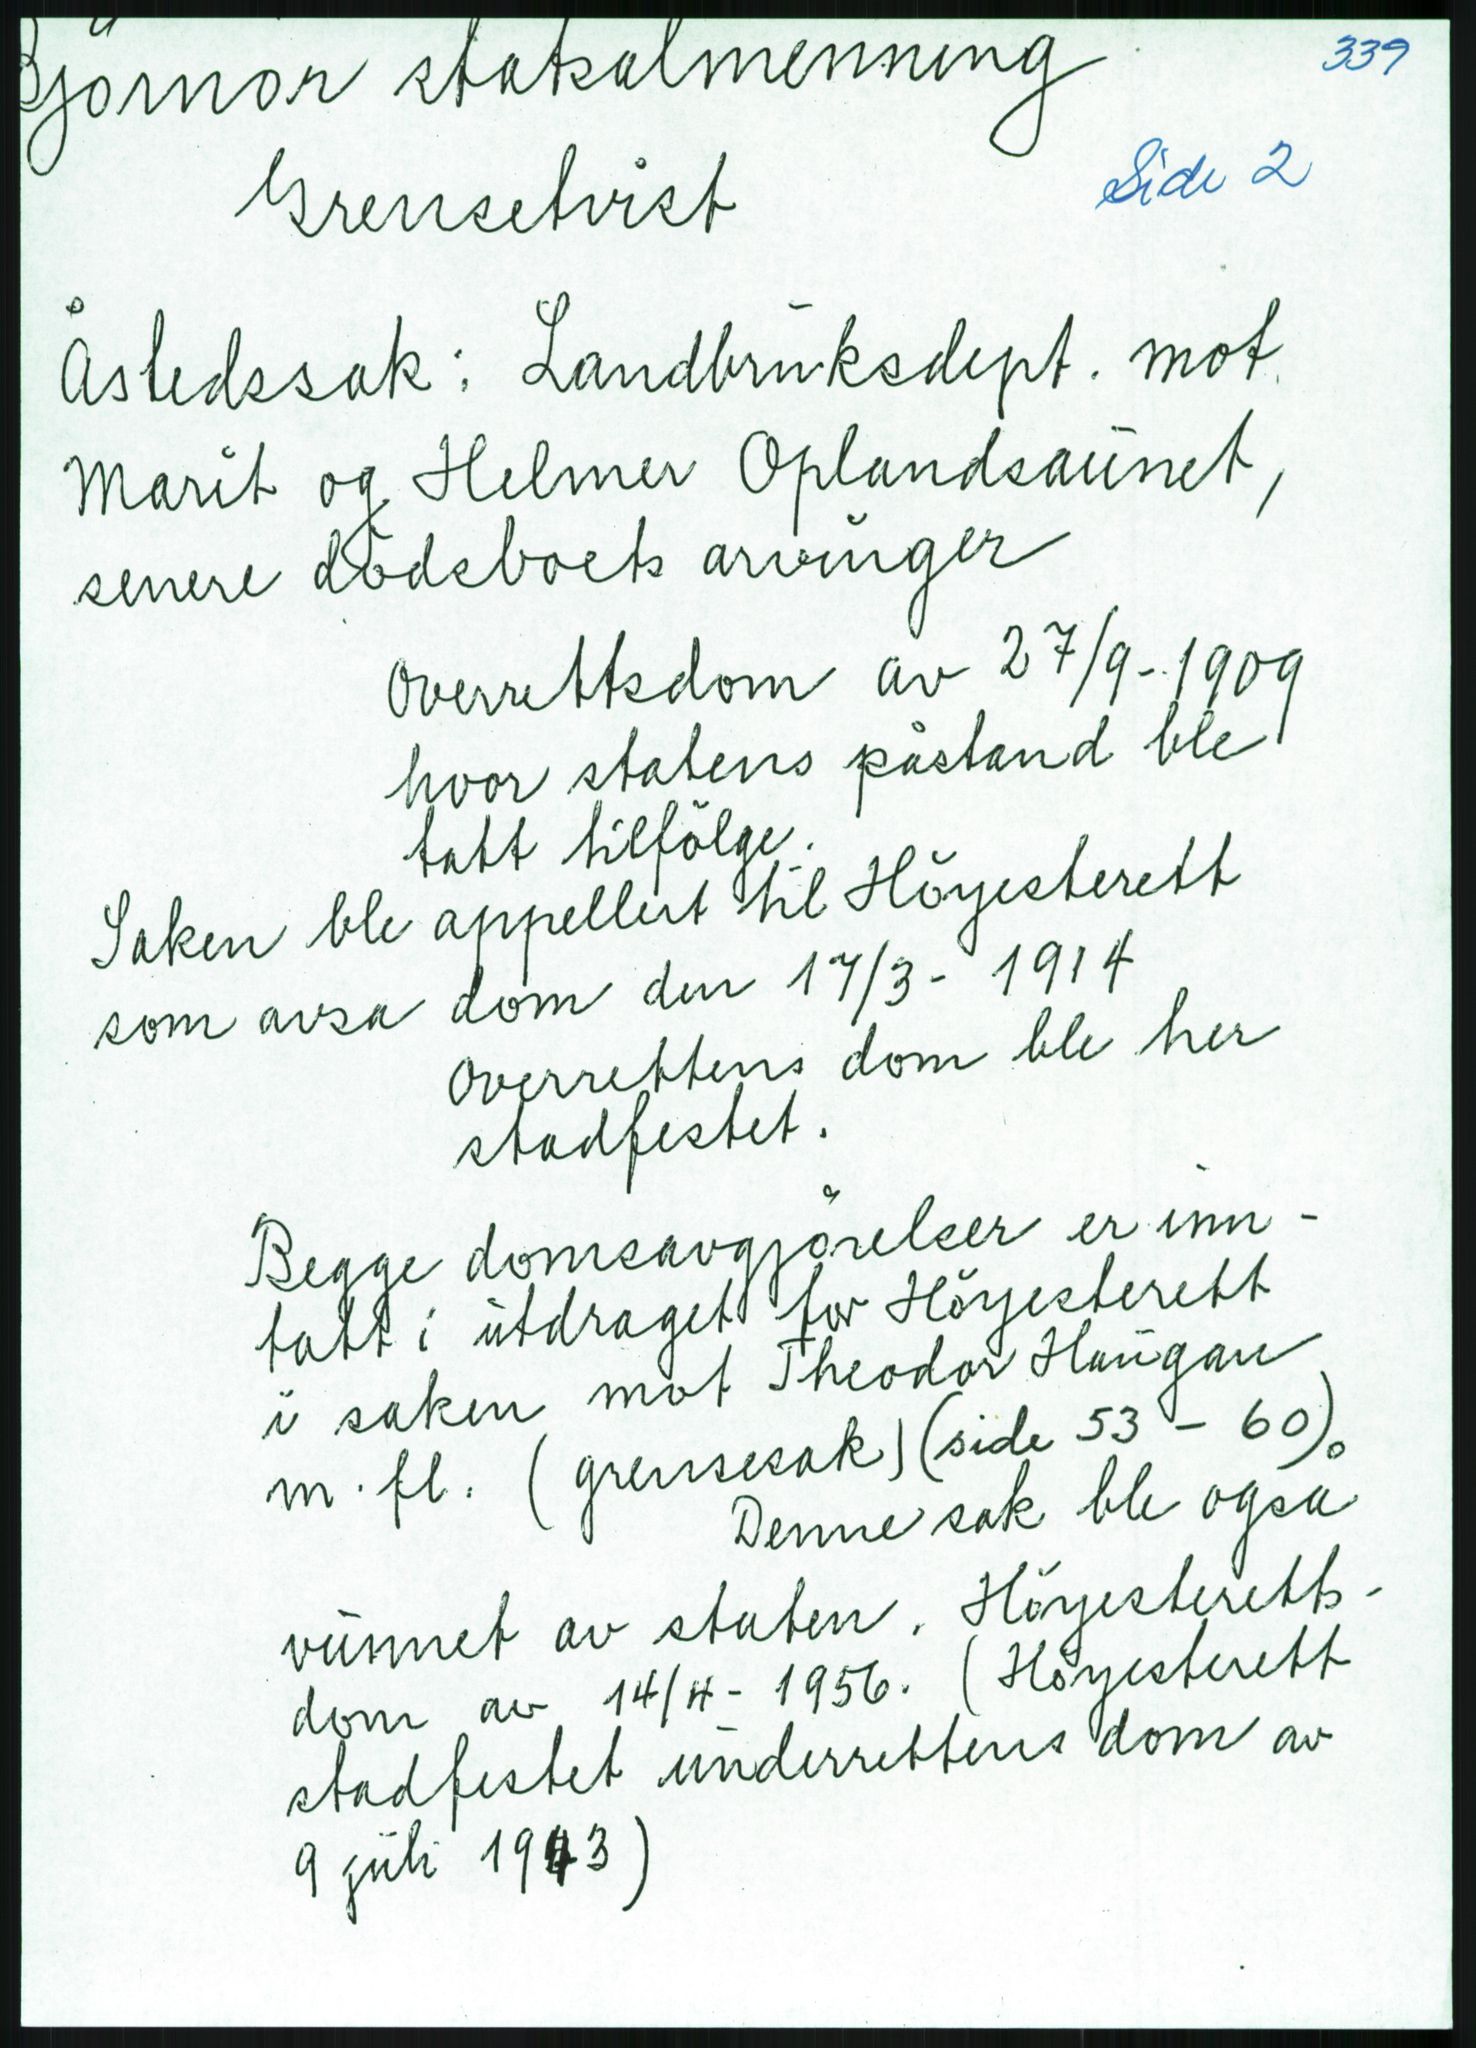 339
Björnör statsalmenning
Side 2
Grensetvist
Åstedssak: Landbruksdept. mot
Marit og Helmer Oplandsaunet,
senere dödsboets arvinger
Overrettsdom av 27/9-1909
hvor statens påstand ble
tatt tilfölge.
Saken ble appellert til Höyesterett
som avsa dom den 17/3- 1914
Overrettens dom ble her
stadfestet.
Begge domsavgjörelser er inn-
tatt i utdraget for Höyesterett
i saken mot Theodor Haugan
m. fl. (grensesak) (side 53 - 60).
Denne sak ble også
vunnet av staten. Höyesteretts-
dom av 14/4- 1956. (Höyesterett
stadfestet underrettens dom av
9 juli 1943)